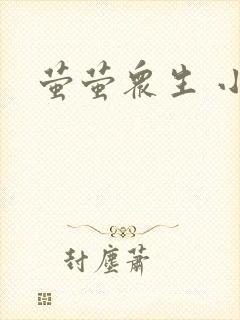 萤萤众生 小
封尘萧